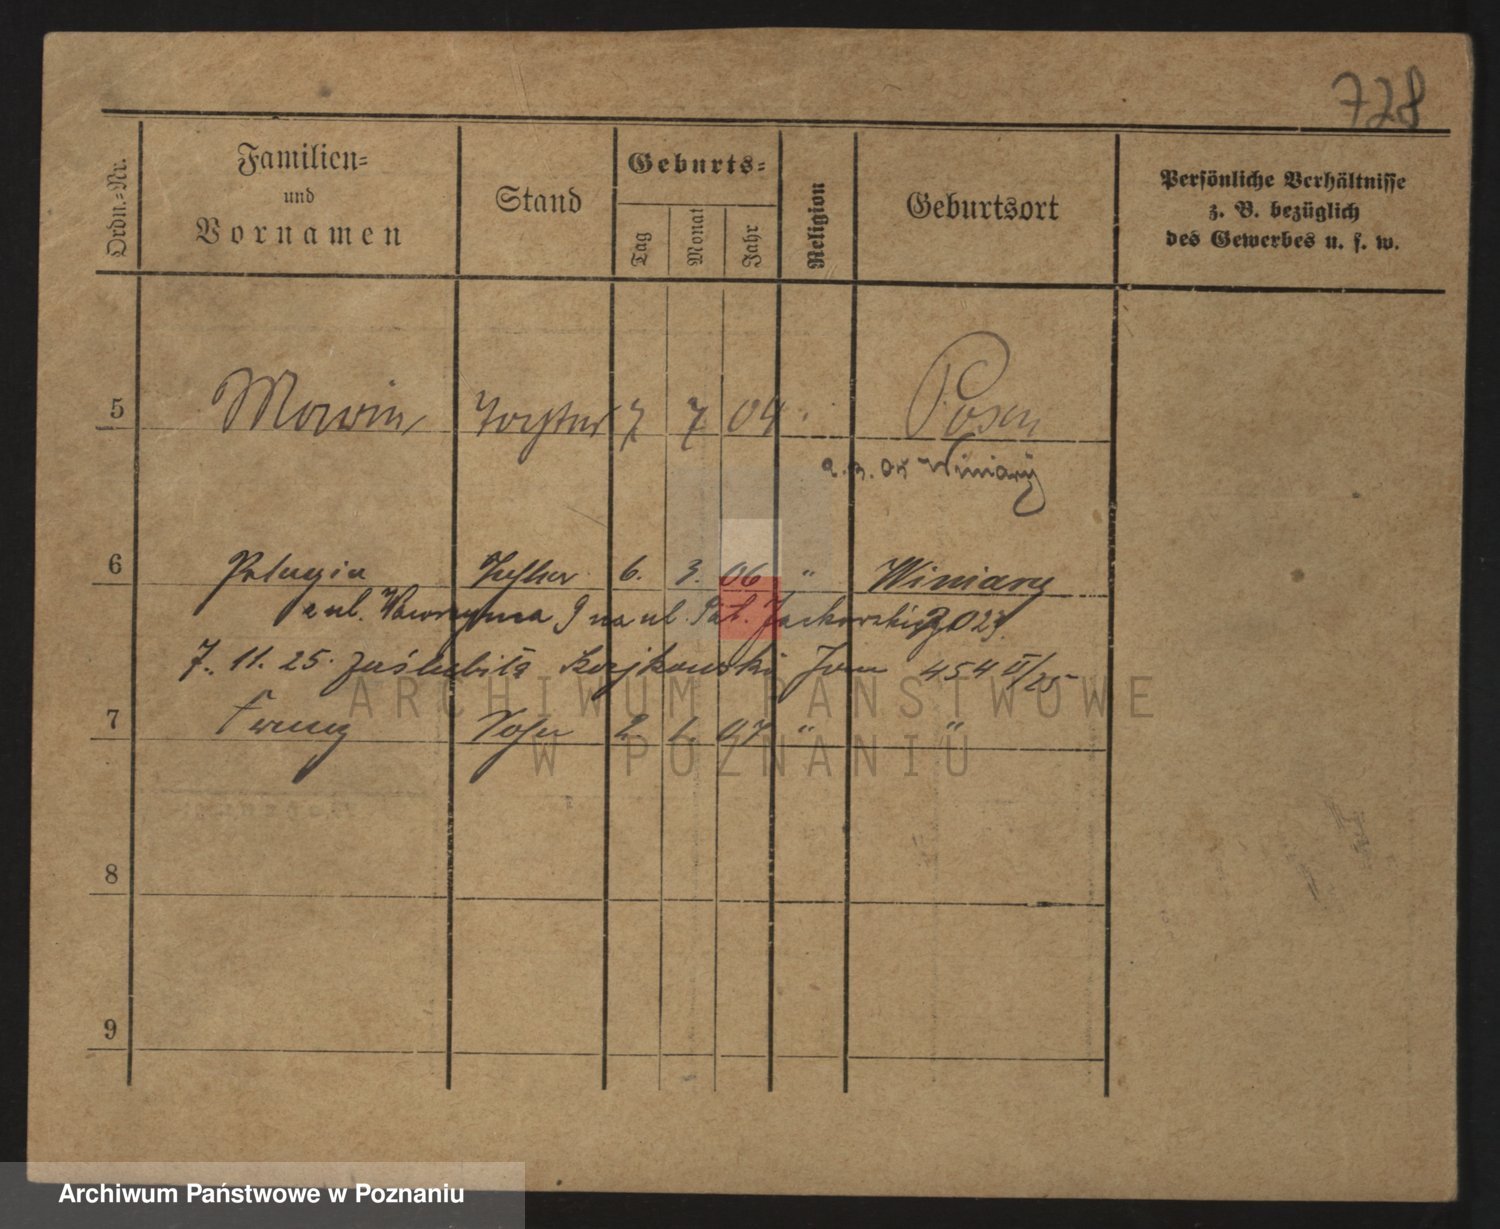 728
Ordn.-Nr.
Familien-
und
Vornamen
Stand
Geburts-
Tag
Monat
Jahr
Religion
Geburtsort
Persönliche Verhältnisse
z. B. bezüglich
des Gewerbes u. s. w.
5 Tochter 7 7 04 Posen
05 Winiary
6 Pelagia Tochter 6. 3. 06 " Winiary
z ul. Wawrzyńca 9 na ul.
7. 11. 25. zaślubiła Jan 454 II/25
7 Franz Sohn 2. 1. 07 " "
ARCHIWUM PAŃSTWOWE
W POZNANIU
8
9
Archiwum Państwowe w Poznaniu